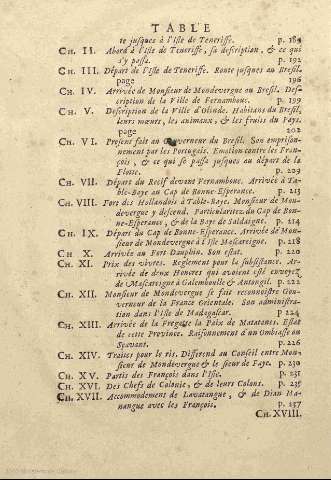 TABLE
te jusques à l'Isle de Teneriffe. p. 184
CH. II. Abord à l'Isle de Teneriffe, sa description, & ce qui
s'y passa. p. 192
CH. III. Départ de l'Isle de Teneriffe. Route jusques au Bresil.
page 196
CH. IV. Arrivée de Monsieur de Mondevergue au Bresil. Des-
cription de la Ville de Fernambouc. p. 199
CH. V. Description de la Ville d'Olinde. Habitans du Bresil,
leurs mœurs, les animaux, & les fruits du Pays.
page 202
CH. VI. Present fait au Gouverneur du Bresil. Son emprison-
nement par les Portugais. Emotion contre les Fran-
çois, & ce qui se passa jusques au départ de la
Flotte. p. 209
CH. VII. Départ du Recif devant Fernambouc. Arrivée à Ta-
ble-Baye au Cap de Bonne-Esperance. p. 213
CH. VIII. Fort des Hollandois à Table-Baye. Monsieur de Mon-
devergue y descend. Particularitez du Cap de Bon-
ne-Esperance, & de la Baye de Saldaigne. p. 214
CH. IX. Départ du Cap de Bonne-Esperance. Arrivée de Mon-
sieur de Mondevergue à l'Isle Mascareigne. p. 218
CH X. Arrivée au Fort Dauphin. Son estat. p. 220
CH. XI. Prix des vivres. Reglement pour la subsistence. Ar-
rivée de deux Hourcres qui avoient esté envoyez
de Mascareigne à Galemboulle & Antongil. p. 222
CH. XII. Monsieur de Mondevergue se fait reconnoistre Gou-
verneur de la France Orientale. Son administra-
tion dans l'Isle de Madagascar. p. 224
CH. XIII. Arrivée de la Fregate la Paix de Matatanes. Estat
de cette Province. Raisonnement d'un Ombiasse ou
Sçavant. p. 226
CH. XIV. Traites pour le ris. Differend au Conseil entre Mon-
sieur de Mondevergue & le sieur de Faye. p. 230
CH. XV. Partis des François dans l'Isle. p. 231
CH. XVI. Des Chefs de Colonie, & de leurs Colons. p. 235
CH. XVII. Accommodement de Lavatangue, & de Dian Ma-
nangue avec les François. p. 237
CH. XVIII.